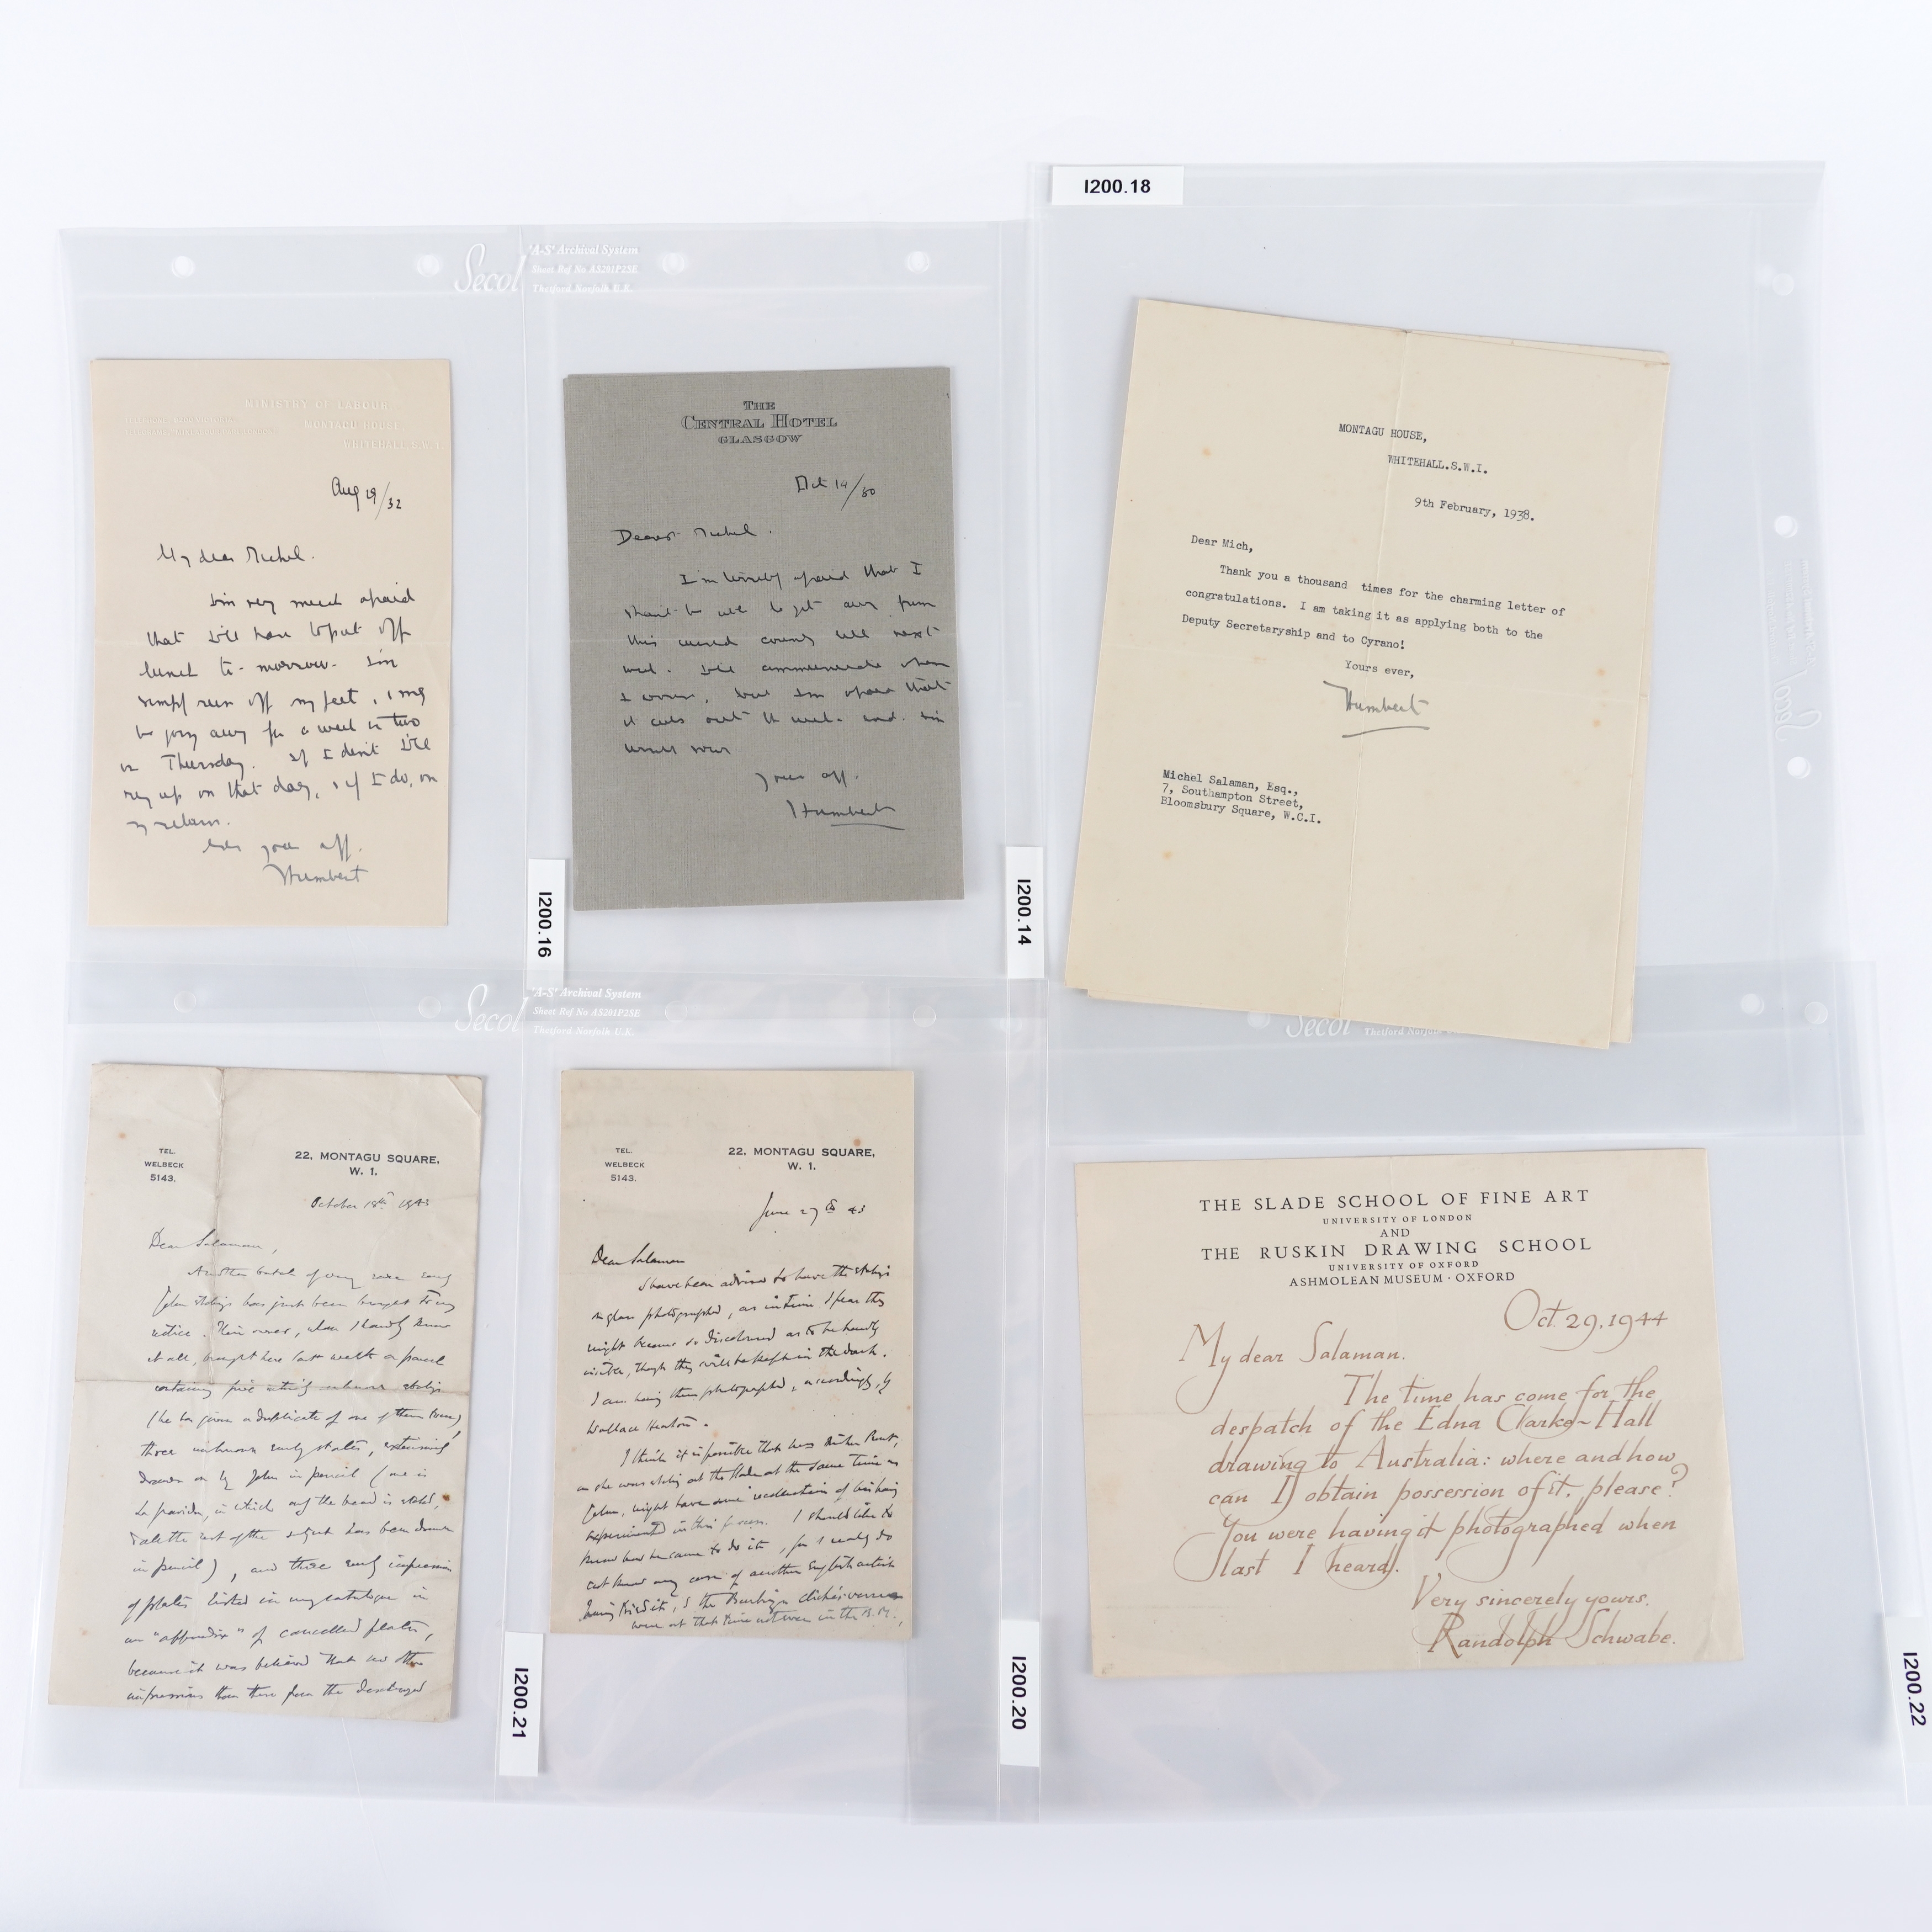 I200.18
Secol
'A-S' Archival System
Sheet Ref No AS201P2SE
Thetford Norfolk U.K.
MINISTRY OF LABOUR,
MONTAGU HOUSE,
WHITEHALL, S.W.1.
Aug 29/32
My dear Michel.
I'm very much afraid
that I'll have to put off
lunch to-morrow. I'm
simply run off my feet, & may
be going away for a week or two
on Thursday. If I don't I'll
ring up on that day, & if I do, on
my return.
yours aff.
Humbert
I200.16
THE
CENTRAL HOTEL
GLASGOW
Oct 14/30
Dearest Michel.
I'm terribly afraid that I
shan't be able to get away from
this country till next
week. I'll communicate when
I but I'm afraid that
it cuts out the week-end. I'm
yours aff.
Humbert
I200.14
MONTAGU HOUSE,
WHITEHALL.S.W.I.
9th February, 1938.
Dear Mich,
Thank you a thousand times for the charming letter of
congratulations. I am taking it as applying both to the
Deputy Secretaryship and to Cyrano!
Yours ever,
Humbert
Michel Salaman, Esq.,
7, Southampton Street,
Bloomsbury Square, W.C.I.
Secol
'A-S' Archival System
Sheet Ref No AS201P2SE
Thetford Norfolk U.K.
TEL.
WELBECK
5143.
22, MONTAGU SQUARE,
W. 1.
October 18th 1943
Dear Salaman,
Another batch of very rare early
John etchings has just been brought to my
notice. Their owner, whom I hardly know
at all, brought here last week a parcel
containing five entirely unknown etchings
(he has given a duplicate of one of them to me)
three unknown early states, extensively
drawn on by John in pencil (one is
in which only the head is etched,
all the rest of the subject has been drawn
in pencil), and three early impressions
of plates listed in my catalogue in
an "appendix" of cancelled plates,
because it was believed that no other
impressions than those from the destroyed
I200.21
TEL.
WELBECK
5143.
22, MONTAGU SQUARE,
W. 1.
June 27th 43
Dear Salaman
I have been advised to have the etchings
on glass photographed, as in time I fear they
might become so discoloured as to be hardly
visible, though they will be kept in the dark.
I am having them photographed, accordingly, by
Wallace Heaton.
I think it is possible that
as she was etching at the Slade at the same time as
John, might have some recollection of his having
experimented in this process. I should like to
know how he came to do it, for I really do
not know any case of another English artist
having tried it, & the Barbizon clichés-verre
were at that time not even in the B.M.,
I200.20
Secol
Thetford Norfolk
THE SLADE SCHOOL OF FINE ART
UNIVERSITY OF LONDON
AND
THE RUSKIN DRAWING SCHOOL
UNIVERSITY OF OXFORD
ASHMOLEAN MUSEUM · OXFORD
Oct. 29. 1944
My dear Salaman.
The time has come for the
despatch of the Edna Clarke-Hall
drawing to Australia: where and how
can I obtain possession of it, please?
You were having it photographed when
last I heard.
Very sincerely yours.
Randolph Schwabe.
I200.22